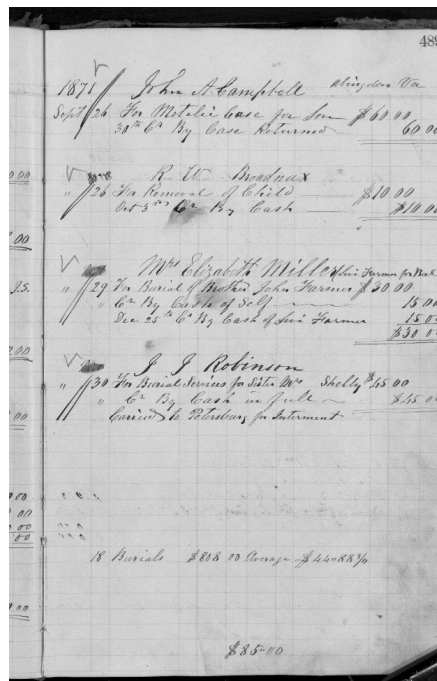 489
1871 John A Campbell Abingdon Va
Sept 26 For Metalic Case for Son $60.00
30th Cr By Case Returned 60 00
R. W. Broadnax
" 26 For Removal of Child $10.00
Oct 5th Cr By Cash $10 00
Mrs Elizabeth Miller
" 29 For Burial of Brother John Farmer $30.00
" Cr By Cash of Self 15 00
Dec 25th Cr By Cash of Farmer 15 00
$30 00
J J Robinson
" 30 For Burial Services for Sister Mrs Shelly $45 00
" Cr By Cash in full $45 00
Carried to Petersburg for Interment
18 Burials $808 00 Average $44.88 3/4
$85.00